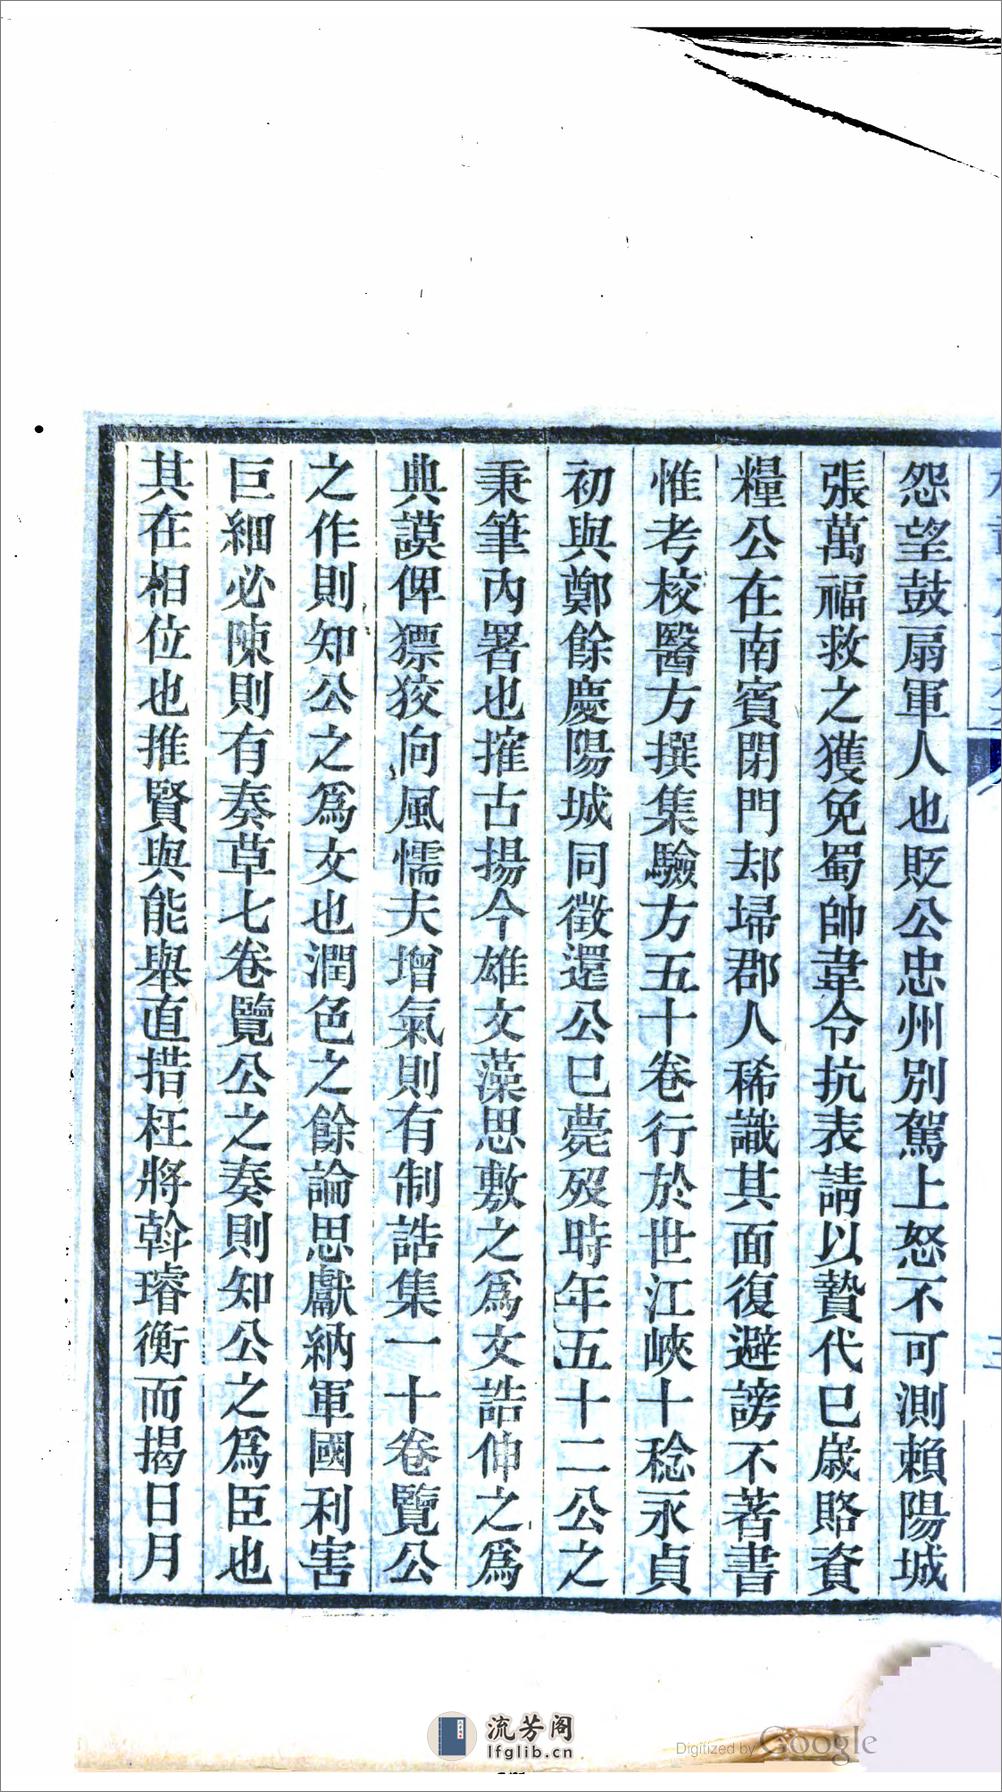 怨望鼓扇軍人也貶公忠州別駕上怒不可測賴陽城
張萬福救之獲免蜀帥韋令抗表請以贄代已歲賂資
糧公在南賓閉門却埽郡人稀識其面復避謗不著書
惟考校醫方撰集驗方五十卷行於世江峽十稔永貞
初與鄭餘慶陽城同徵還公已薨歿時年五十二公之
秉筆內署也搉古揚今雄文藻思敷之爲文誥伸之爲
典謨俾獷狡向風懦夫增氣則有制誥集一十卷覽公
之作則知公之爲文也潤色之餘論思獻納軍國利害
巨細必陳則有奏草七卷覽公之奏則知公之爲臣也
其在相位也推賢與能舉直措枉將斡璿衡而揭日月
流芳阁
lfglib.cn
Digitized by Google